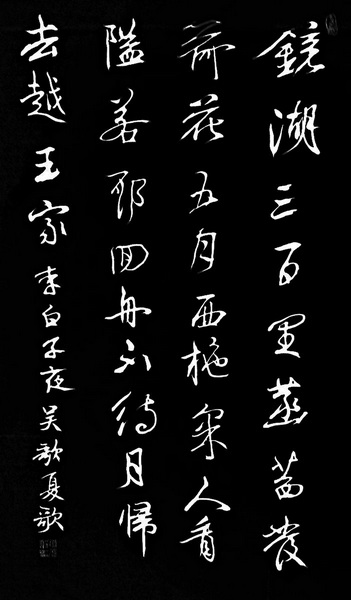 鏡湖三百里菡萏發
荷花五月西施采人看
隘若耶回舟不待月歸
去越王家 李白子夜吴歌夏歌